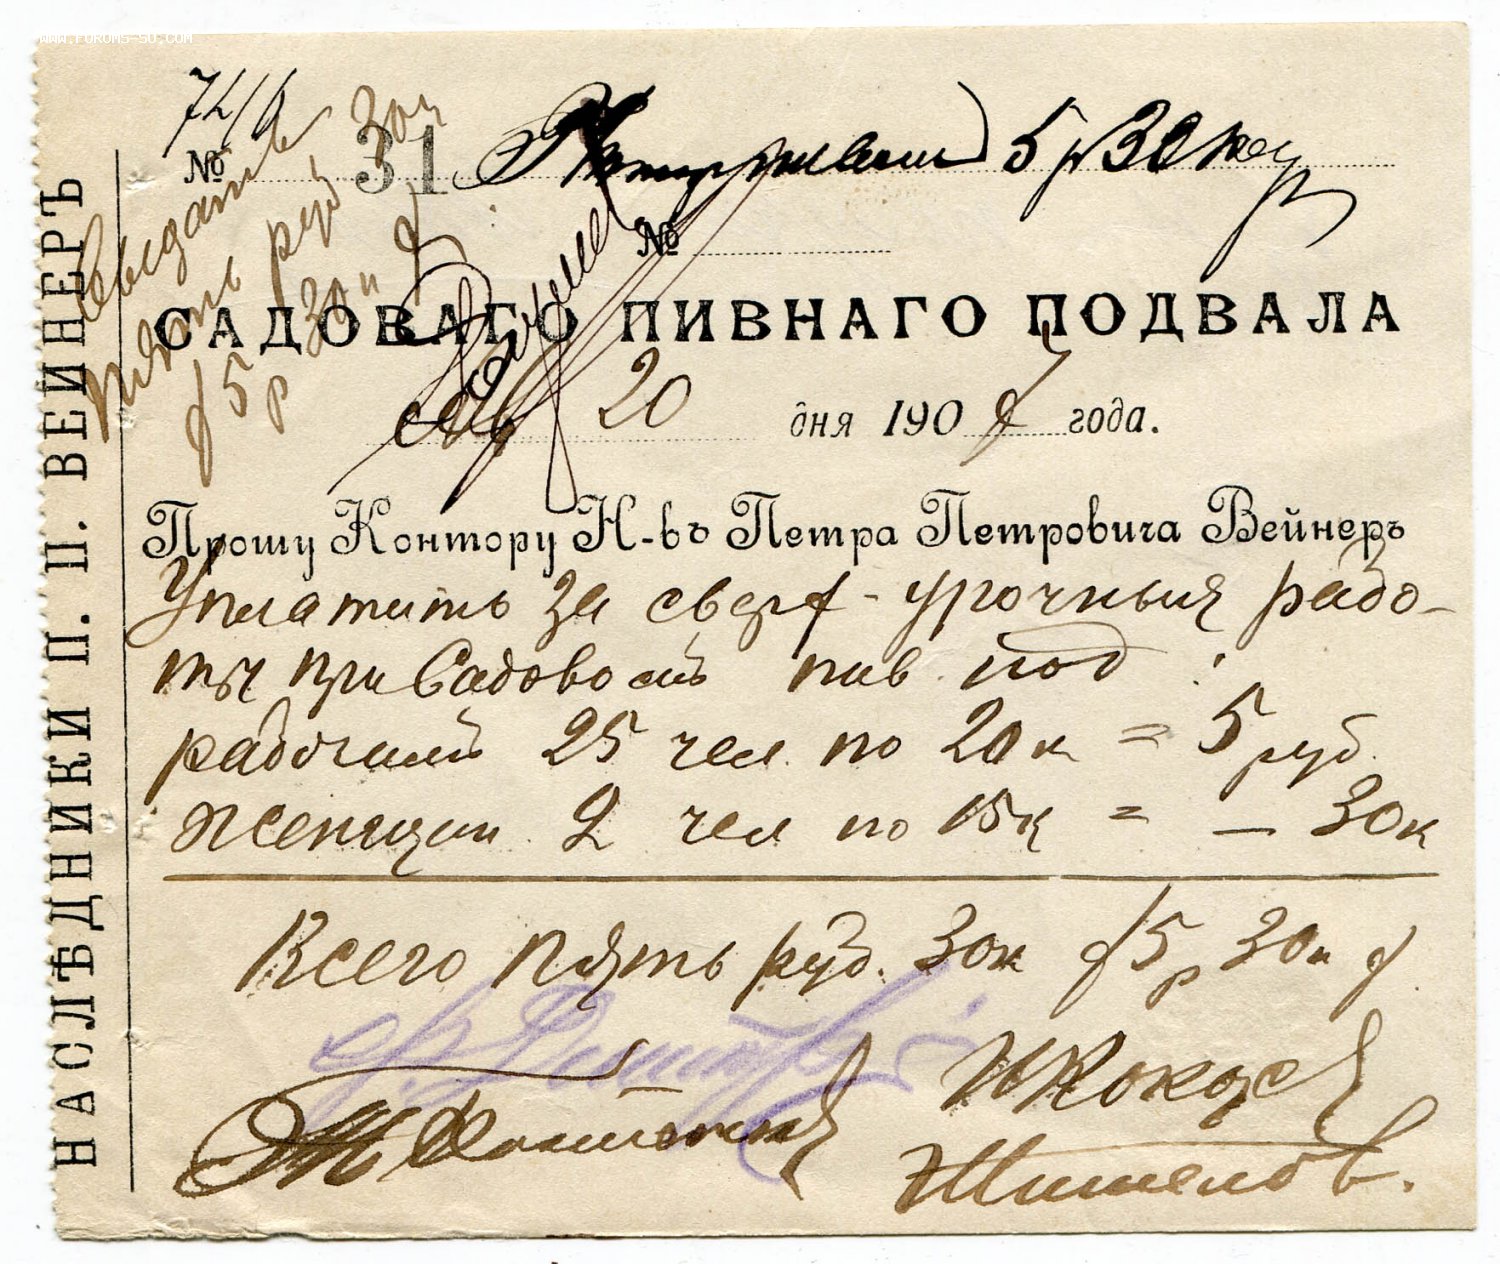 WWW.FORUMS-SU.COM
№ 31
5 р 30 коп
выдать
пять руб 30 к
5 р 30 к
№
НАСЛѢДНИКИ П. П. ВЕЙНЕРЪ
САДОВАГО ПИВНАГО ПОДВАЛА
20 дня 190 года.
Прошу Контору Н-въ Петра Петровича Вейнеръ
Уплатить за сверх-урочныя рабо-
ты при Садовомъ пив. под.
рабочимъ 25 чел. по 20 к = 5 руб.
женщин 2 чел по 15 к = — 30 к
Всего пять руб. 30 к 5 р 30 к